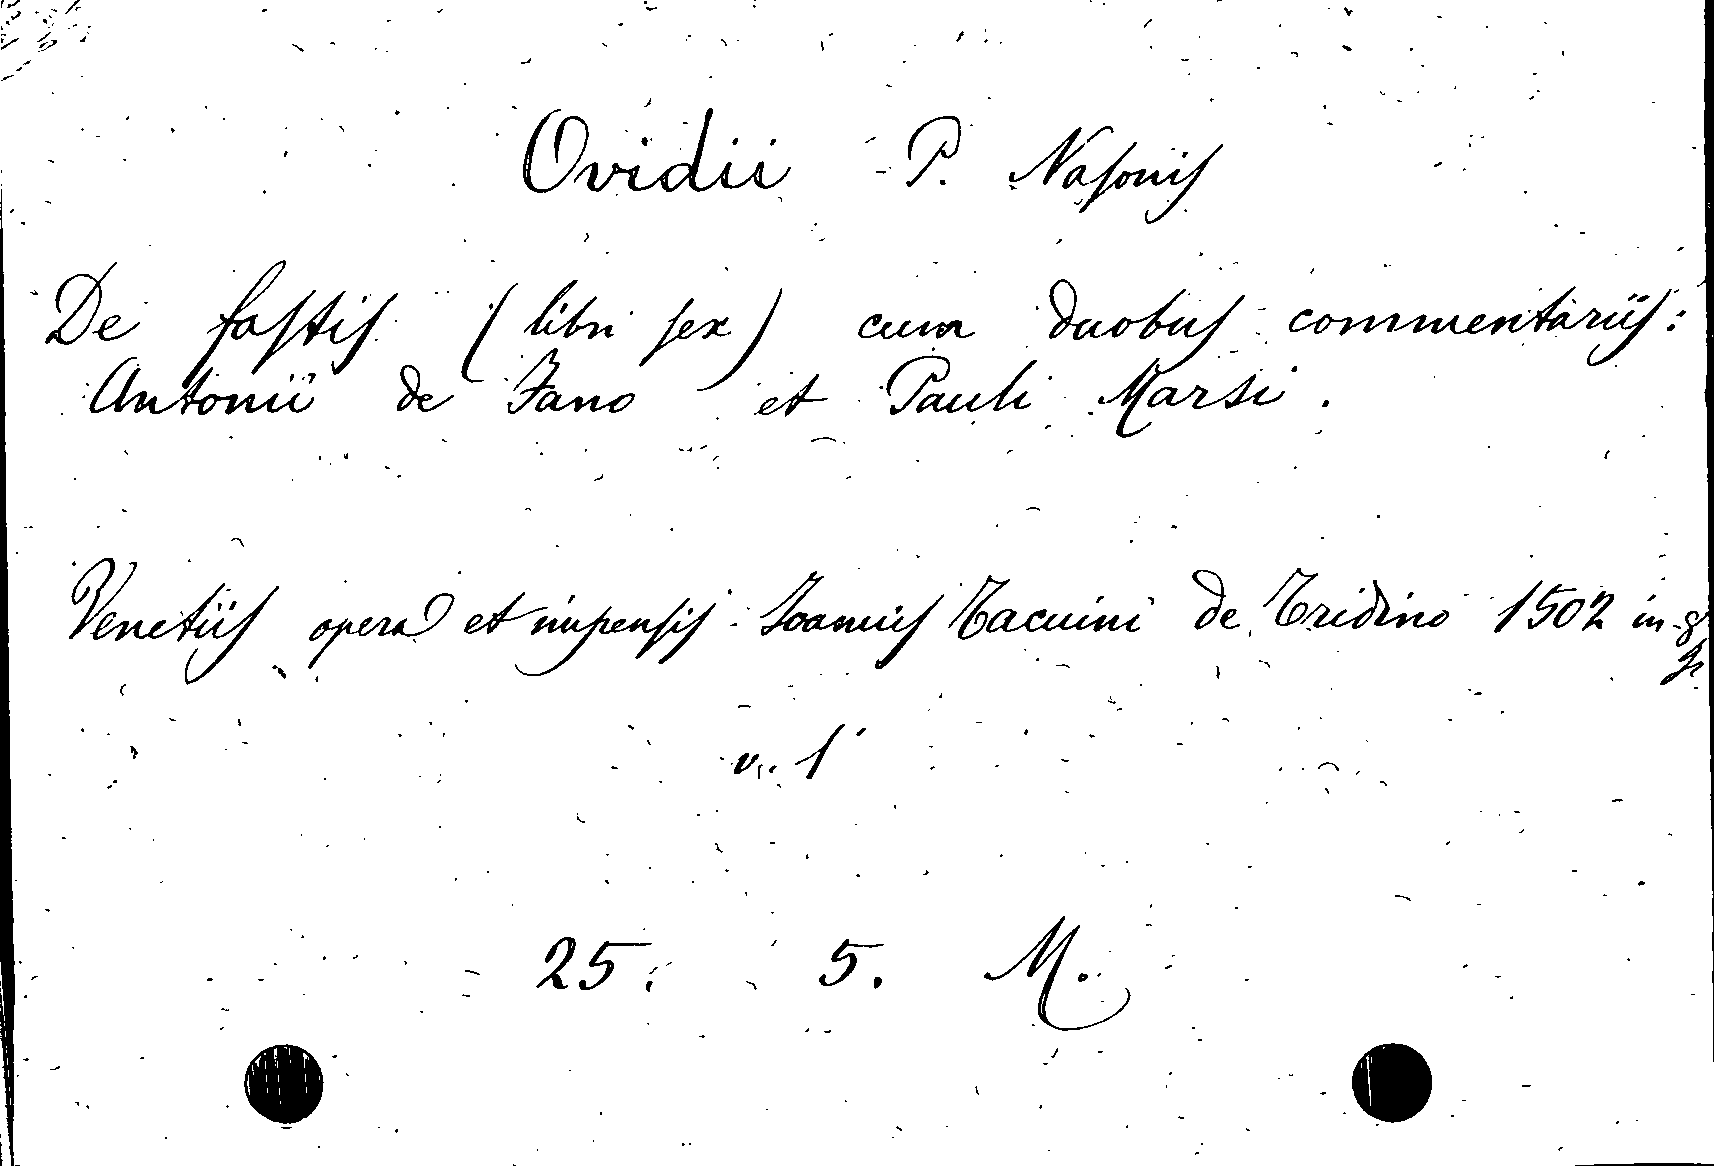 Ovidii P. Nasonis
De fastis (libri sex) cum duobus commentariis:
Antonii de Fano et Pauli Marsi.
Venetiis opera et impensis Ioannis Tacuini de Tridino 1502 in-8
v. 1
25. 5. M.